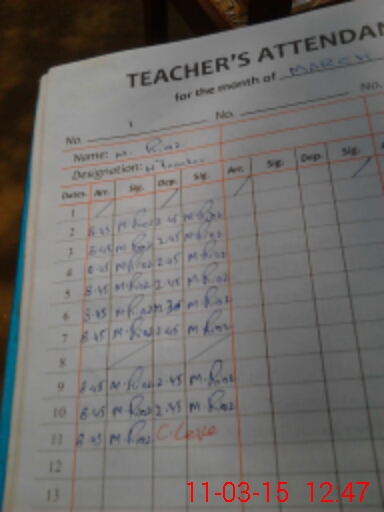 TEACHER'S ATTENDAN
for the month of MARCH
No. 1 No. No.
Name: M. Riaz
Designation:
Dates Arr. Sig. Dep. Sig. Arr. Sig. Dep. Sig.
1
2 8.45 M.Riaz 2.45 M.Riaz
3 8.45 M.Riaz 2.45 M.Riaz
4 8.45 M.Riaz 2.45 M.Riaz
5 8.45 M.Riaz 2.45 M.Riaz
6 8.45 M.Riaz M.Riaz
7 8.45 M.Riaz 2.45 M.Riaz
8
9 8.45 M.Riaz 2.45 M.Riaz
10 8.45 M.Riaz 2.45 M.Riaz
11 8.45 M.Riaz C.Leave
12
13
11-03-15 12:47